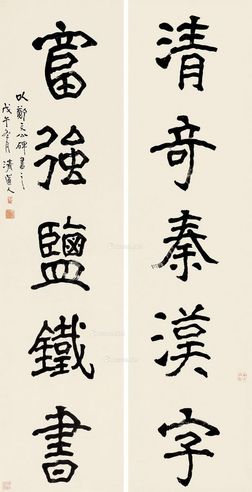 清奇秦漢字
富強鹽鐵書
以鄭文公碑書之
戊午六月 清道人